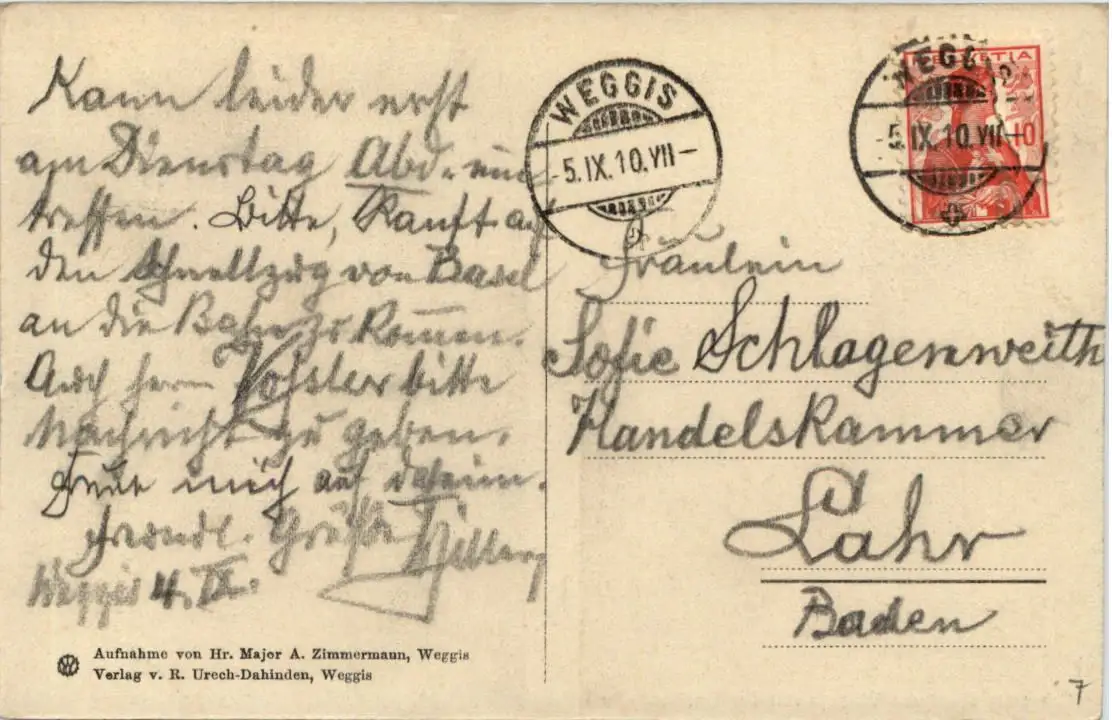 Kann leider erst
am Dienstag Abd. ein
treffen. Bitte, Kauft auf
den Schnellzug von Basel
an die Bahn zu kommen.
Auch Herrn Vohsler bitte
Nachricht zu geben.
Freue mich auf daheim.
Freundl. Grüße
Weggis 4. IX.
Aufnahme von Hr. Major A. Zimmermann, Weggis
Verlag v. R. Urech-Dahinden, Weggis
WEGGIS
-5.IX.10.VII-
HELVETIA
10
WEGGIS
-5.IX.10.VII-
Fräulein
Sofie Schlagenweith
Handelskammer
Lahr
Baden
7